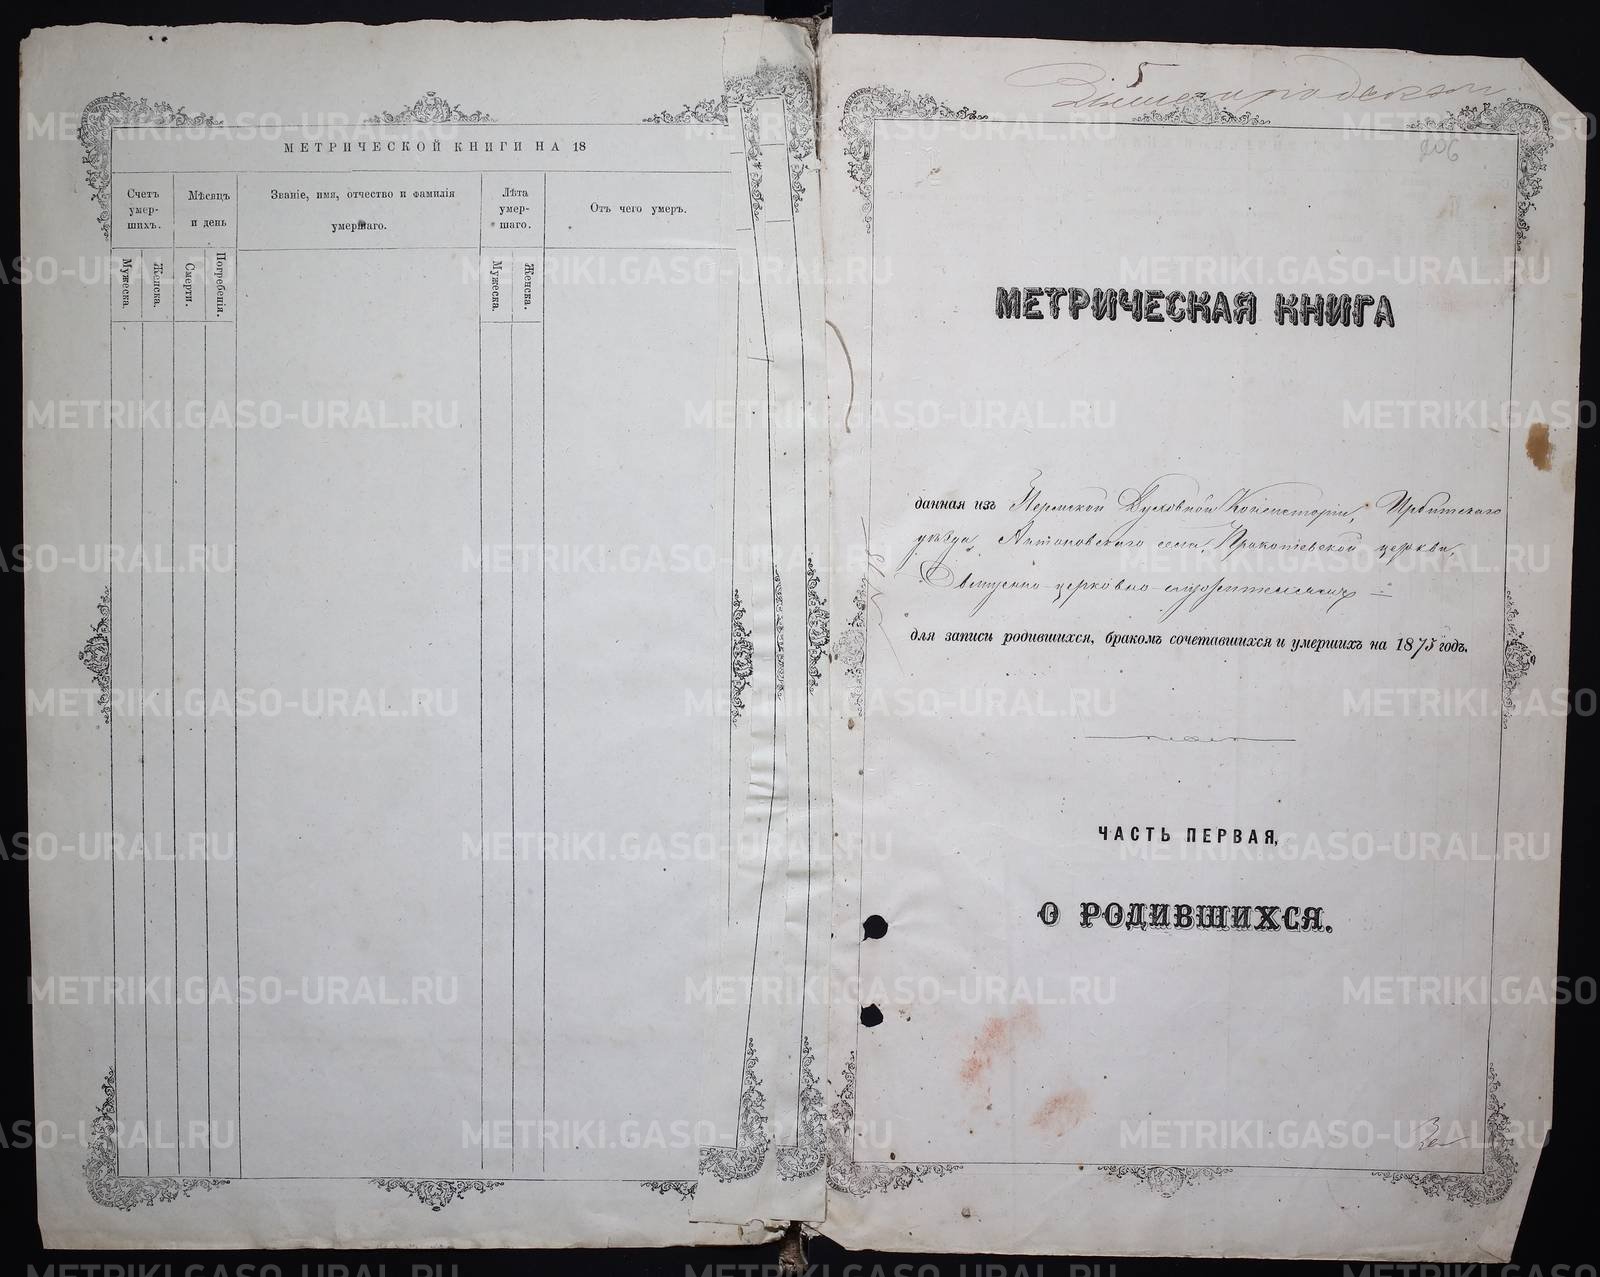 МЕТРИЧЕСКОЙ КНИГИ НА 18
Счетъ умер-шихъ.
Мѣсяцъ и день
Званіе, имя, отчество и фамилія умершаго.
Лѣта умер-шаго.
Отъ чего умеръ.
Мужеска.
Женска.
Смерти.
Погребенія.
Мужеска.
Женска.
5
206
МЕТРИЧЕСКАЯ КНИГА
данная изъ Пермской Духовной Консисторіи, Ирбитскаго
уѣзда, Антоновскаго села, Прокопіевской церкви,
Священно-церковно-служителямъ
для записи родившихся, бракомъ сочетавшихся и умершихъ на 1875 годъ.
ЧАСТЬ ПЕРВАЯ,
О РОДИВШИХСЯ.
METRIKI.GASO-URAL.RU